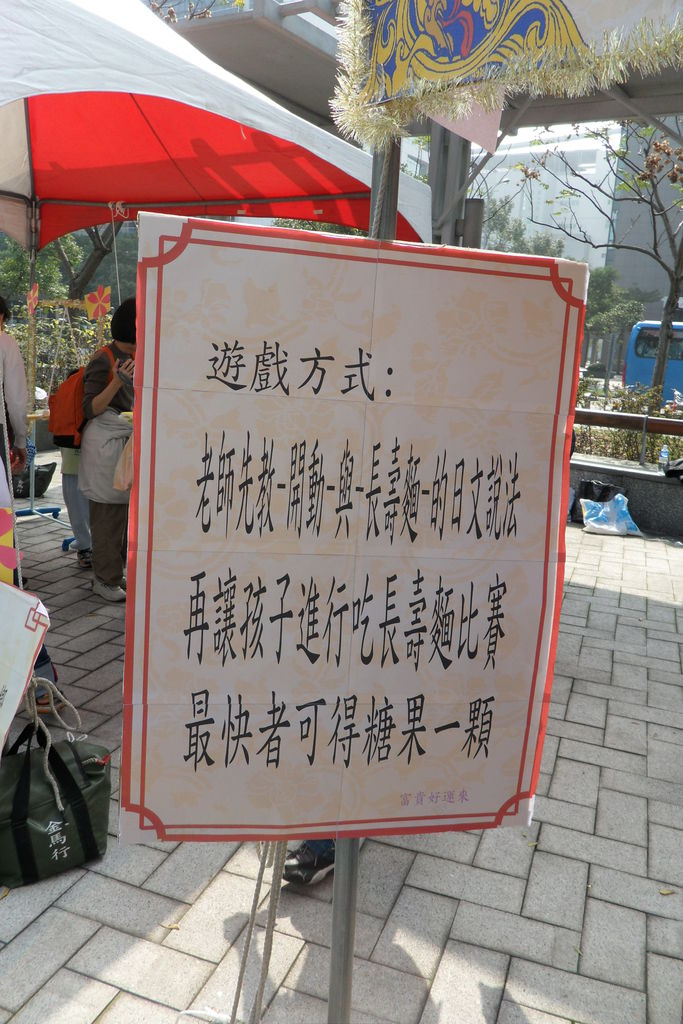 遊戲方式：
老師先教-開動-與-長壽麵-的日文說法
再讓孩子進行吃長壽麵比賽
最快者可得糖果一顆
富貴好運來
金馬行